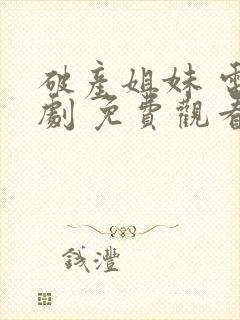 破產姐妹
劇 免費觀看
錢灃